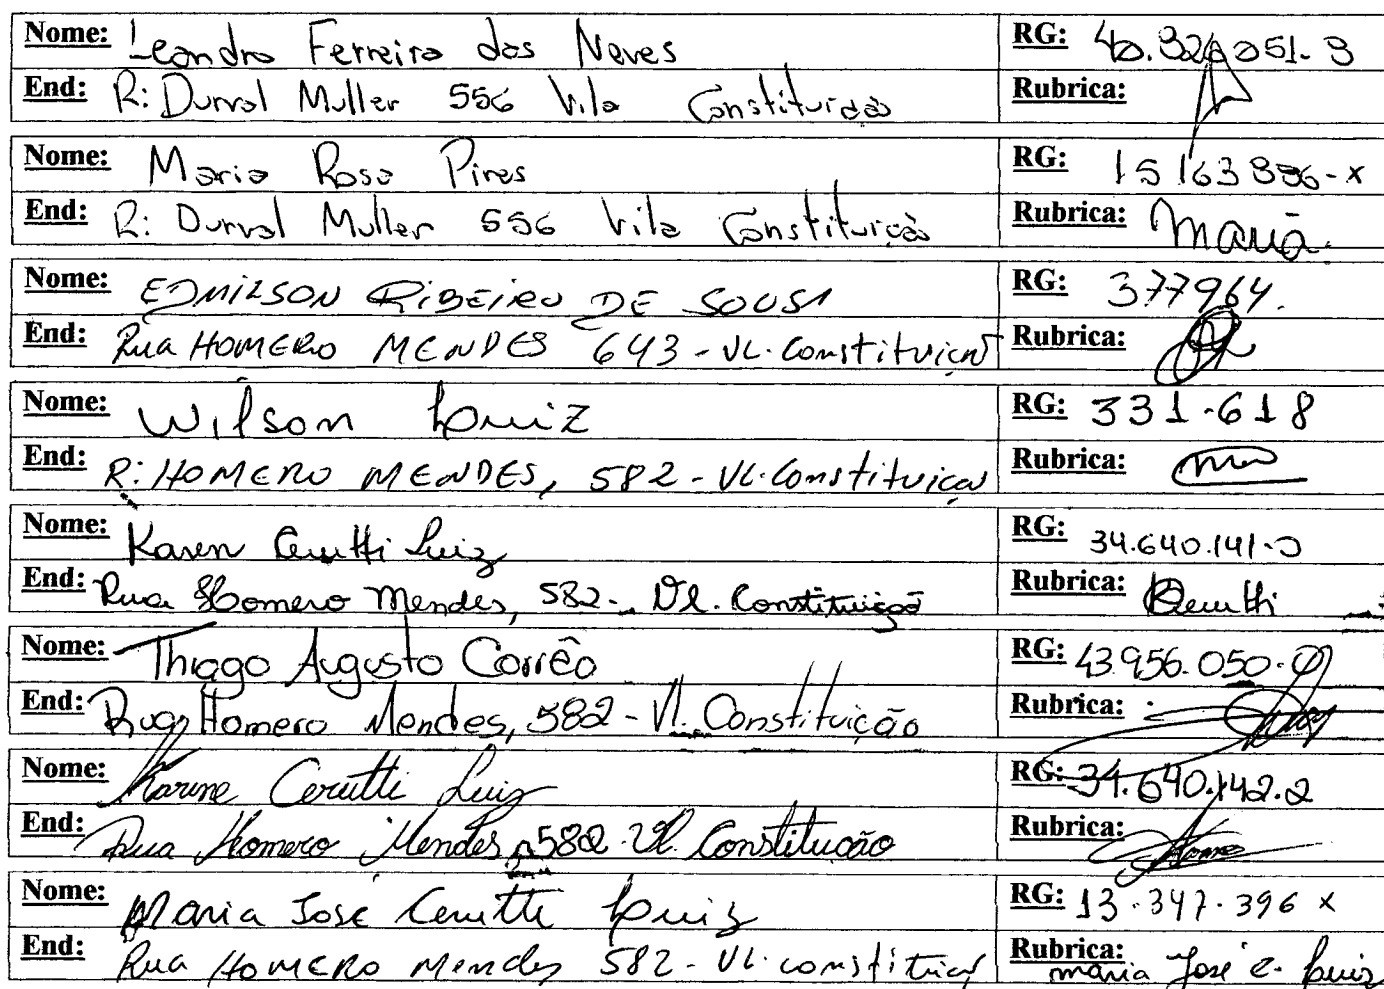 Nome: Leandro Ferreira dos Neves RG: 40.326051-3
End: R: Durval Muller 556 Vila Constituição Rubrica:
Nome: Maria Rosa Pires RG: 15163836-x
End: R: Durval Muller 556 Vila Constituição Rubrica: Maria.
Nome: EDMILSON RIBEIRO DE SOUSA RG: 377964.
End: Rua HOMERO MENDES 643 - VL. Constituição Rubrica:
Nome: Wilson Luiz RG: 331-618
End: R: HOMERO MENDES, 582 - VL. Constituição Rubrica:
Nome: Karen Cerutti Luiz RG: 34.640.141-0
End: Rua Homero Mendes, 582 - Vl. Constituição Rubrica: KCerutti
Nome: Thiago Augusto Corrêa RG: 43.956.050-
End: Rua Homero Mendes, 582 - Vl. Constituição Rubrica:
Nome: Karine Cerutti Luiz RG: 34.640.142.2
End: Rua Homero Mendes, 582 Vl. Constituoão Rubrica:
Nome: Maria José Cerutti Luiz RG: 13.347.396 x
End: Rua HOMERO Mendes 582 - VL. constituiçao Rubrica: maria José C. Luiz